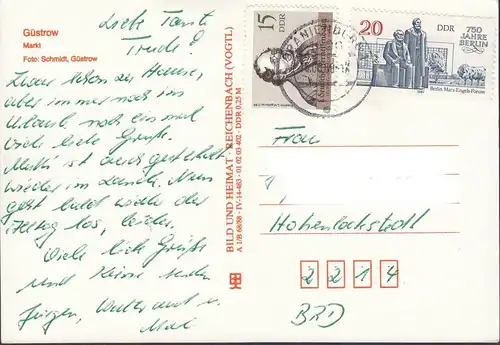 Güstrow
Markt
Foto: Schmidt, Güstrow
Liebe Tante
Trude!
Zwar schon zu Hause,
aber immer noch im
Urlaub noch ein mal
viele liebe Grüße.
Mutti ist auch gesterbt
wieder im Lande. Nun
geht bald wieder der
Alltag los, leider.
Viele liebe Grüße
und Küsse senden
Jürgen, Waltraud u.
BILD UND HEIMAT · REICHENBACH (VOGTL)
A 1/B 68/88 · IV-14-483 · 01 02 03 402 · DDR 0,25 M
15
DDR
20
DDR
750
JAHRE
BERLIN
Berlin, Marx-Engels-Forum
Frau
Hohenlockstedt
2 2 1 4
BRD